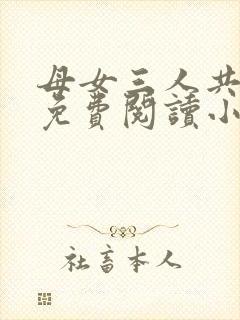 母女三人共
免費閱讀小
社畜本人